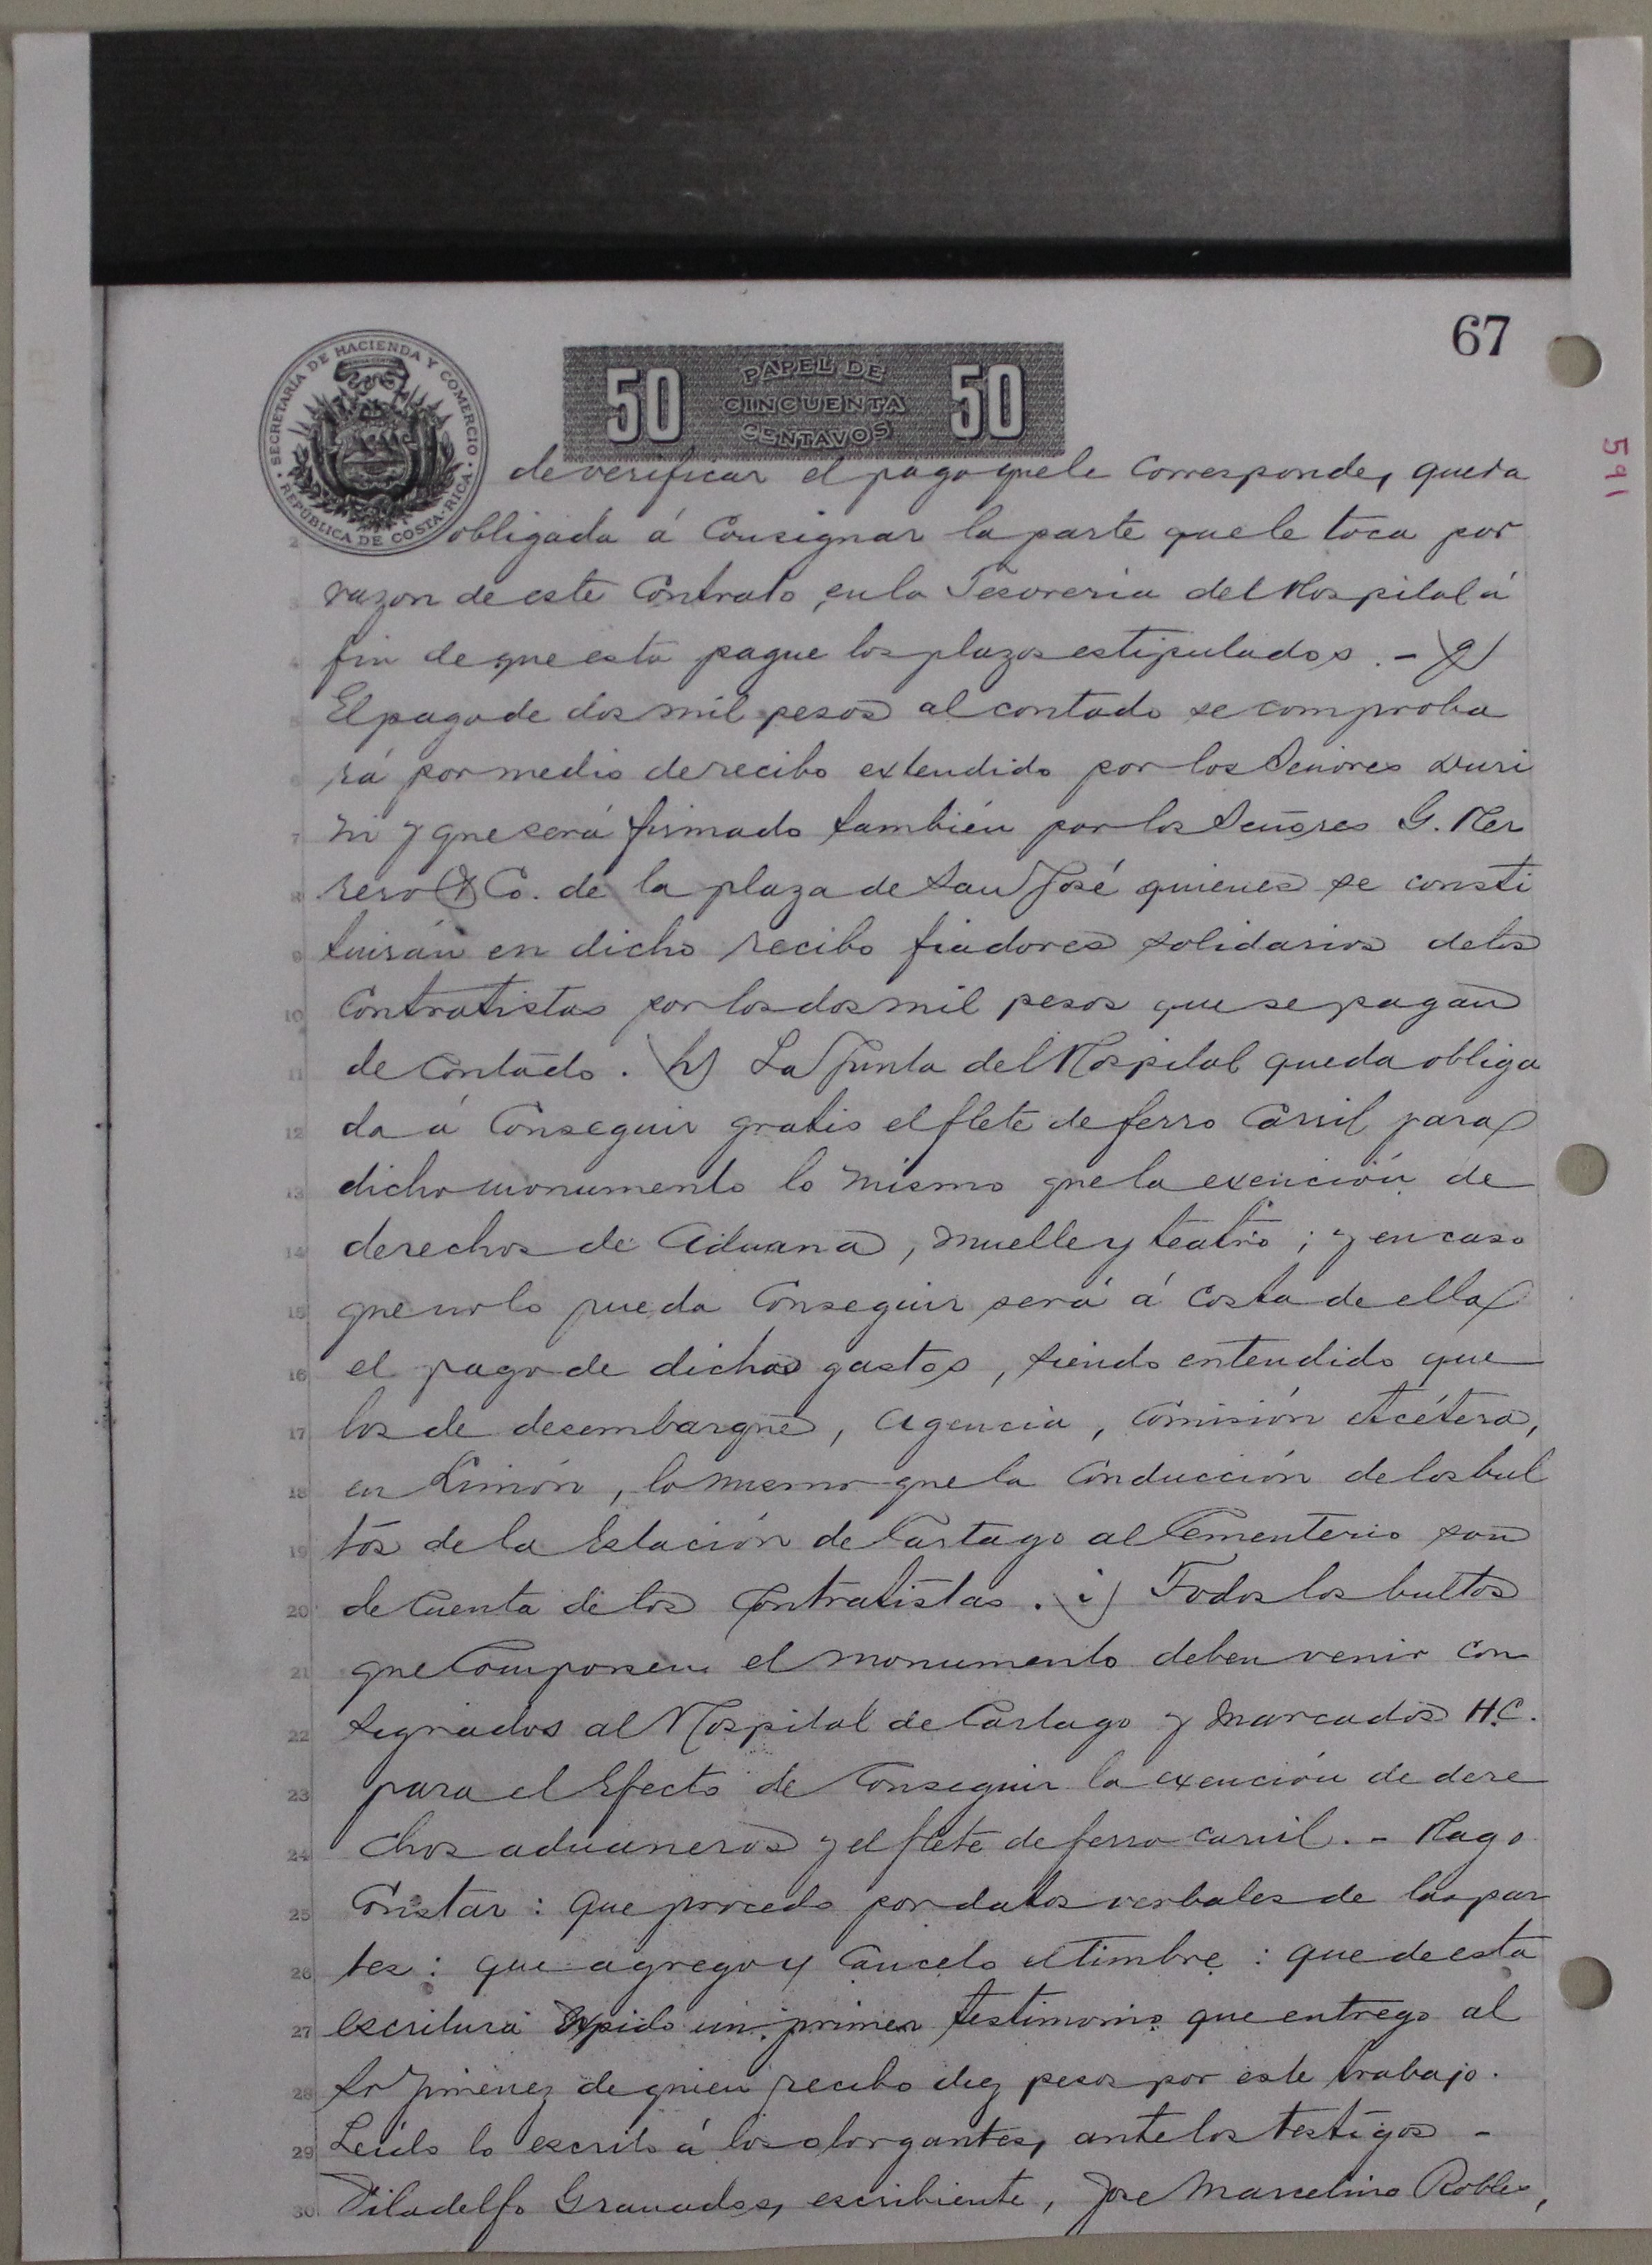 67
591
SECRETARÍA DE HACIENDA Y COMERCIO
REPÚBLICA DE COSTA-RICA
50 PAPEL DE CINCUENTA CENTAVOS 50
de verificar el pago que le corresponde, queda
2 obligada á Consignar la parte que le toca por
3 razon de este Contrato, en la Tesoreria del Hospital á
4 fin de que esta pague los plazos estipulados. - g)
5 El pago de dos mil pesos al contado se comproba
6 rá por medio de recibo extendido por los Señores Duri
7 ni y que será firmado también por los Señores G. Her
8 rero & Co. de la plaza de San José quienes se consti
9 tuirán en dicho recibo fiadores solidarios de los
10 Contratistas por los dos mil pesos que se pagan
11 de Contado. h) La Junta del Hospital queda obliga
12 da á Conseguir gratis el flete de ferro Carril para
13 dicho monumento lo mismo que la exención de
14 derechos de Aduana, muelle y teatro; y en caso
15 que no lo pueda Conseguir será á costa de ella
16 el pago de dichos gastos, siendo entendido que
17 los de desembarque, Agencia, Comisión etcétera,
18 en Limón, lo mismo que la Conducción de los bul
19 tos de la Estación de Cartago al Cementerio son
20 de Cuenta de los Contratistas. i) Todos los bultos
21 que Componen el monumento deben venir con
22 signados al Hospital de Cartago y marcados H.C.
23 para el Efecto de Conseguir la exención de dere
24 chos aduaneros y el flete de ferro carril. - Hago
25 Constar: Que procedo por datos verbales de las par
26 tes: que agrego y Cancelo el timbre: que de esta
27 escritura Expido un primer testimonio que entrego al
28 Sr Jimenez de quien recibo diez pesos por este trabajo.
29 Leido lo escrito á los otorgantes, ante los testigos -
30 Filadelfo Granados, escribiente, Jose Marcelino Robles,